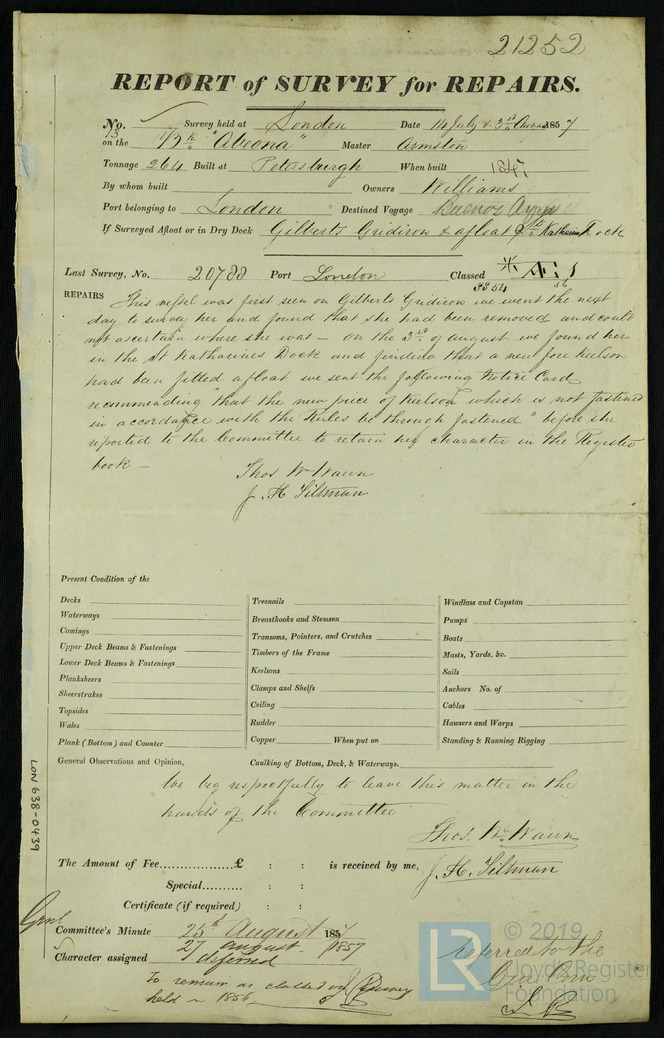 21252
REPORT of SURVEY for REPAIRS.
No. Survey held at London Date 14 July & 3rd August 1857
on the "Abeona" Master Armston
Tonnage 264 Built at Petersburgh When built 1847
By whom built Owners Williams
Port belonging to London Destined Voyage Buenos Ayres
If Surveyed Afloat or in Dry Dock Gilberts Gridiron & afloat St Katharines Dock
Last Survey, No. 20788 Port London Classed
REPAIRS This vessel was first seen on Gilberts Gridiron we went the next
day to survey her and found that she had been removed and could
not ascertain where she was — on the 3rd of August we found her
in the St Katharines Dock and finding that a new fore keelson
had been fitted afloat we sent the following Notice Card
recommending "that the new piece of Keelson which is not fastened
in accordance with the Rules be through fastened" before she
reported to the Committee to retain her character in the Register
book —
Thos Wm Wawn
J. H. Tiltman
Present Condition of the
Decks
Waterways
Comings
Upper Deck Beams & Fastenings
Lower Deck Beams & Fastenings
Planksheers
Sheerstrakes
Topsides
Wales
Plank (Bottom) and Counter
Treenails
Breasthooks and Stemson
Transoms, Pointers, and Crutches
Timbers of the Frame
Keelsons
Clamps and Shelfs
Ceiling
Rudder
Copper When put on
Windlass and Capstan
Pumps
Boats
Masts, Yards, &c.
Sails
Anchors No. of
Cables
Hawsers and Warps
Standing & Running Rigging
General Observations and Opinion, Caulking of Bottom, Deck, & Waterways.
We beg respectfully to leave this matter in the
hands of the Committee
Thos. Wm Wawn
J. H. Tiltman
The Amount of Fee............... £ : : is received by me,
Special.......... : :
Certificate (if required) : :
Committee's Minute 25th August 1857
27 August 1857
Character assigned deferred
referred to the
To remain as classed
held in 1856
LON 638-0439
LR
© 2019
Lloyd's Register
Foundation